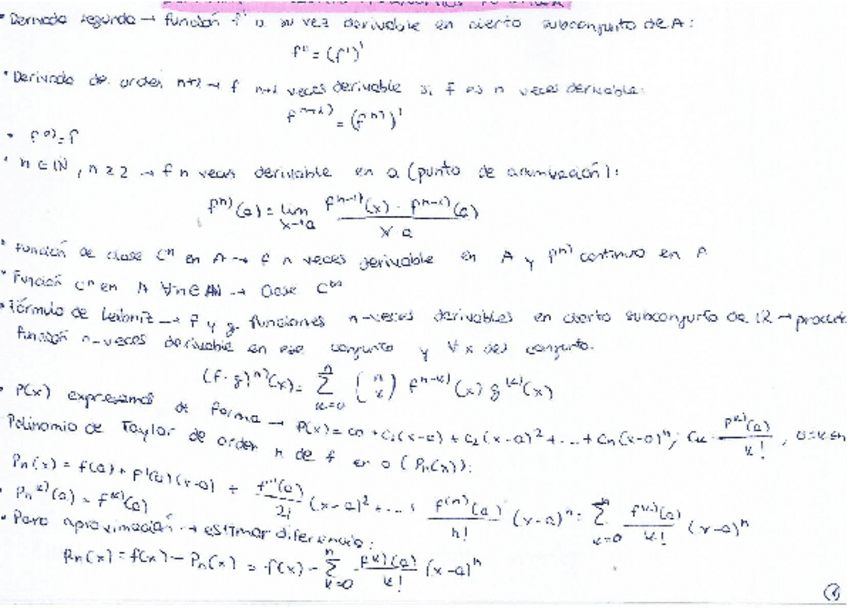 • Derivada segunda → función f' a su vez derivable en cierto subconjunto de A:
f'' = (f')'
• Derivada de orden n+1 → f n+1 veces derivable si f es n veces derivable:
f^(n+1) = (f^n))'
• f^0) = f
• n ∈ ℕ, n ≥ 2 → f n veces derivable en a (punto de acumulación):
f^n)(a) = lim x→a (f^(n-1)(x) - f^(n-1)(a)) / (x a)
• Función de clase C^n en A → f n veces derivable en A y f^n) continua en A
• Función C^n en A ∀n∈ℕ → Clase C^∞
• Fórmula de Leibniz → f y g funciones n-veces derivables en cierto subconjunto de ℝ →
función n-veces derivable en ese conjunto y ∀x del conjunto.
(f·g)^n)(x) = Σ_{k=0}^{n} (n x) f^(n-k)(x) g^(k)(x)
• P(x) expresamos de forma → P(x) = c₀ + c₁(x-a) + c₂(x-a)² + ... + cₙ(x-a)ⁿ; c_k = P^(k)(a)/k!, 0≤k≤n
Polinomio de Taylor de orden n de f en a (Pₙ(x)):
Pₙ(x) = f(a) + f'(a)(x-a) + f''(a)/2! (x-a)² + ... + f^(n)(a)/n! (x-a)ⁿ = Σ_{k=0}^{n} f^(k)(a)/k! (x-a)ⁿ
• Pₙ^(k)(a) = f^(k)(a)
• Para aproximación → estimar diferencia:
Rₙ(x) = f(x) - Pₙ(x) = f(x) - Σ_{k=0}^{n} f^(k)(a)/k! (x-a)ⁿ